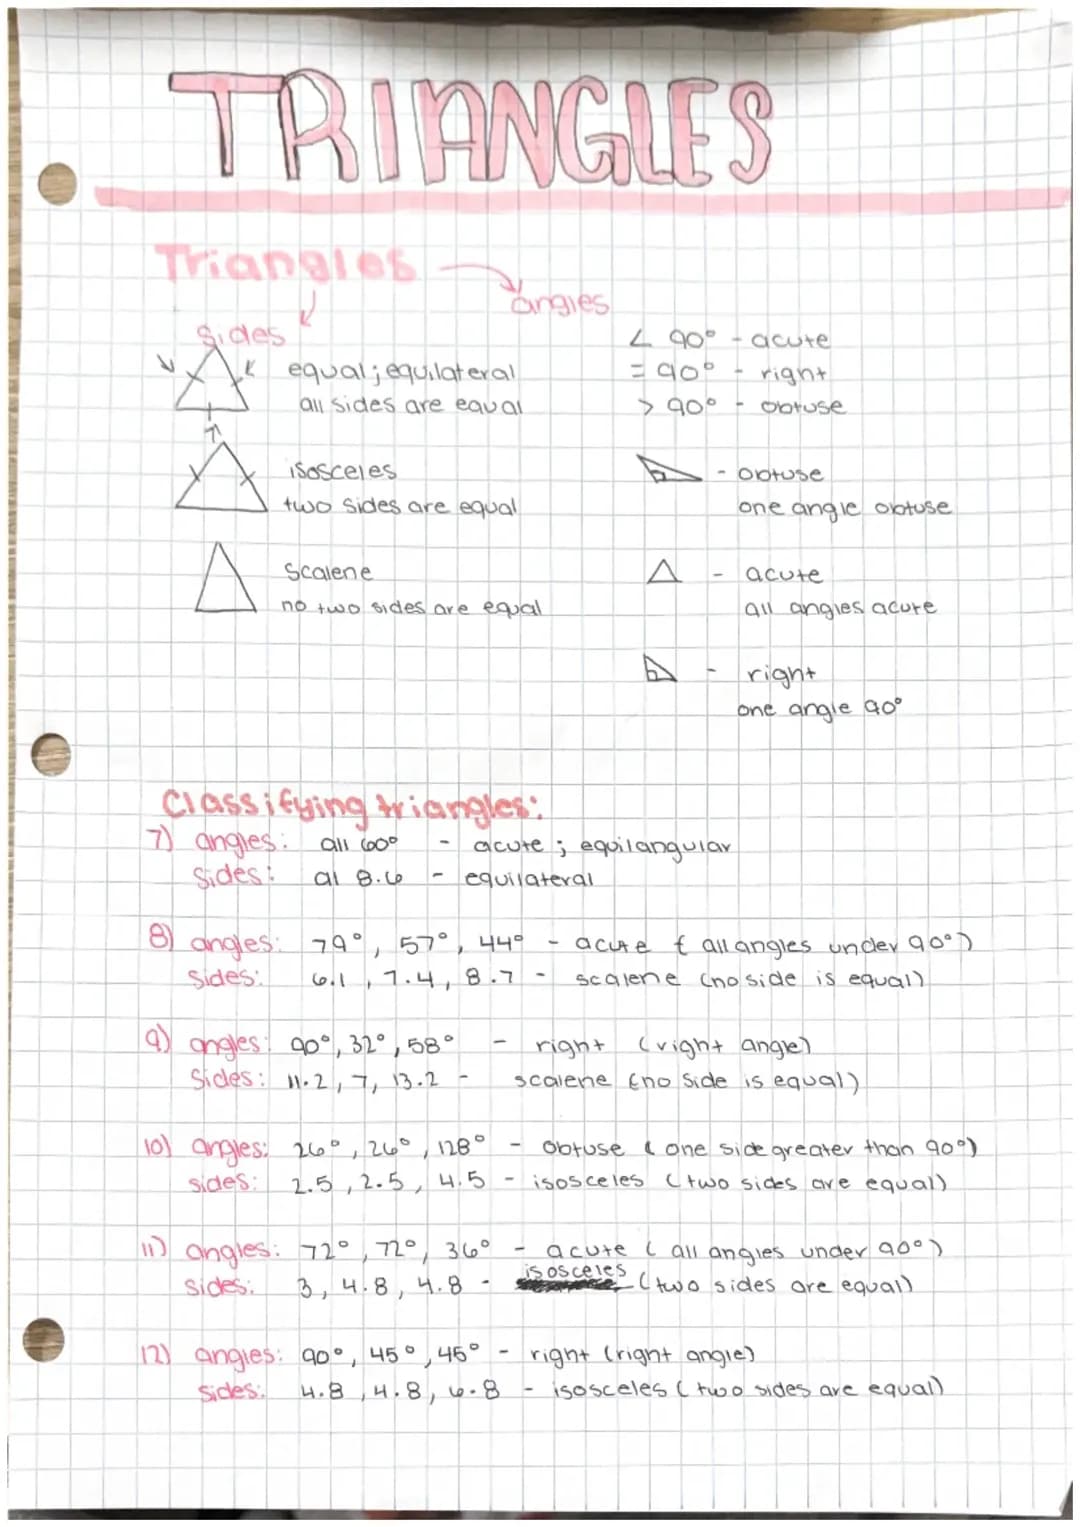 TRIANGLES
Triangles
angles
Sides
< 90° - acute
equal; equilateral
= 90° - right
all sides are equal
> 90° - obtuse
isosceles
- obtuse
two sides are equal
one angle obtuse
Scalene
- acute
no two sides are equal
all angles acute
- right
one angle 90°
Classifying triangles:
7) angles: all 60° - acute ; equilangular
Sides: al 8.6 - equilateral
8) angles: 79°, 57°, 44° - acute (all angles under 90°)
Sides: 6.1, 7.4, 8.7 - scalene (no side is equal)
9) angles: 90°, 32°, 58° - right (right angle)
Sides: 11.2, 7, 13.2 - scalene (no side is equal)
10) angles: 26°, 26°, 128° - obtuse (one side greater than 90°)
sides: 2.5, 2.5, 4.5 - isosceles (two sides are equal)
11) angles: 72°, 72°, 36° - acute (all angles under 90°)
sides: 3, 4.8, 4.8 - isosceles (two sides are equal)
12) angles: 90°, 45°, 45° - right (right angle)
sides: 4.8, 4.8, 6.8 - isosceles (two sides are equal)